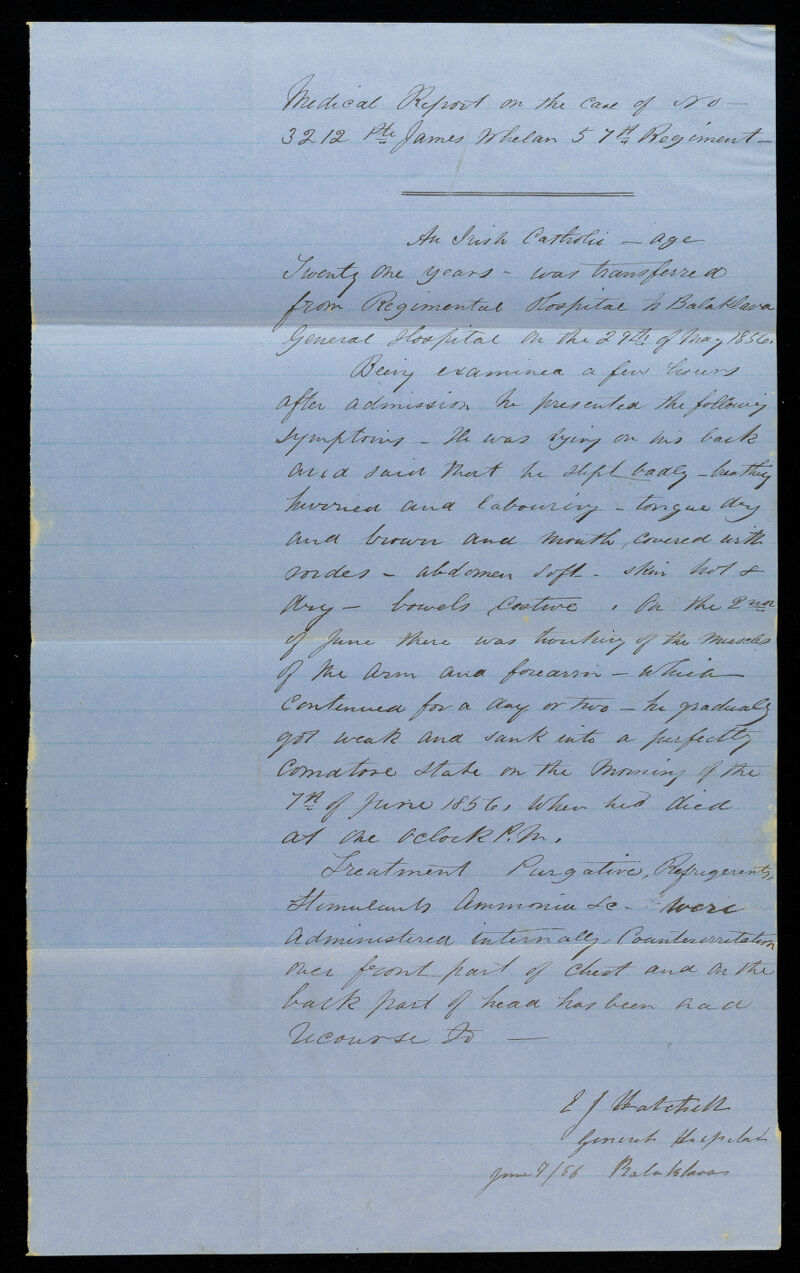 Medical Report on the case of No —
3212 Pte James Whelan 57th Regiment —
An Irish Catholic — age
Twenty one years — was transferred
from Regimental Hospital to Balaklava
General Hospital on the 29th of May 1856.
Being examined a few hours
after admission he presented the following
symptoms — He was lying on his back
and said that he slept badly — breathing
hurried and labouring — tongue dry
and brown and mouth covered with
sordes — abdomen soft — skin hot &
dry — bowels costive . On the 2nd
of June there was twitching of the muscles
of the arm and forearm — which
continued for a day or two — he gradually
got weak and sank into a perfectly
comatose state on the morning of the
7th of June 1856, when he died
at one oclock P.M.
Treatment Purgative, Refrigerents,
Stimulants Ammonia &c — were
administered internally, Counterirretation
over front part of chest and on the
back part of head has been had
recourse to —
E J Hatchell
General Hospital
June 7/56 Balaklava